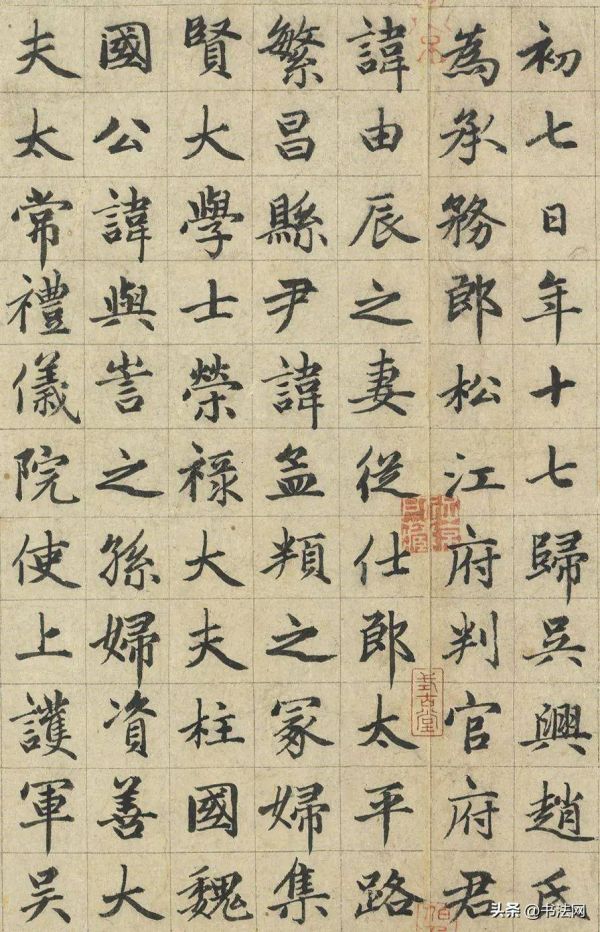 初七日年十七歸吳興趙氏
為承務郎松江府判官府君
諱由辰之妻從仕郎太平路
繁昌縣尹諱孟頖之冢婦集
賢大學士榮祿大夫柱國魏
國公諱與訔之孫婦資善大
夫太常禮儀院使上護軍吳
式古堂
头条@书法网